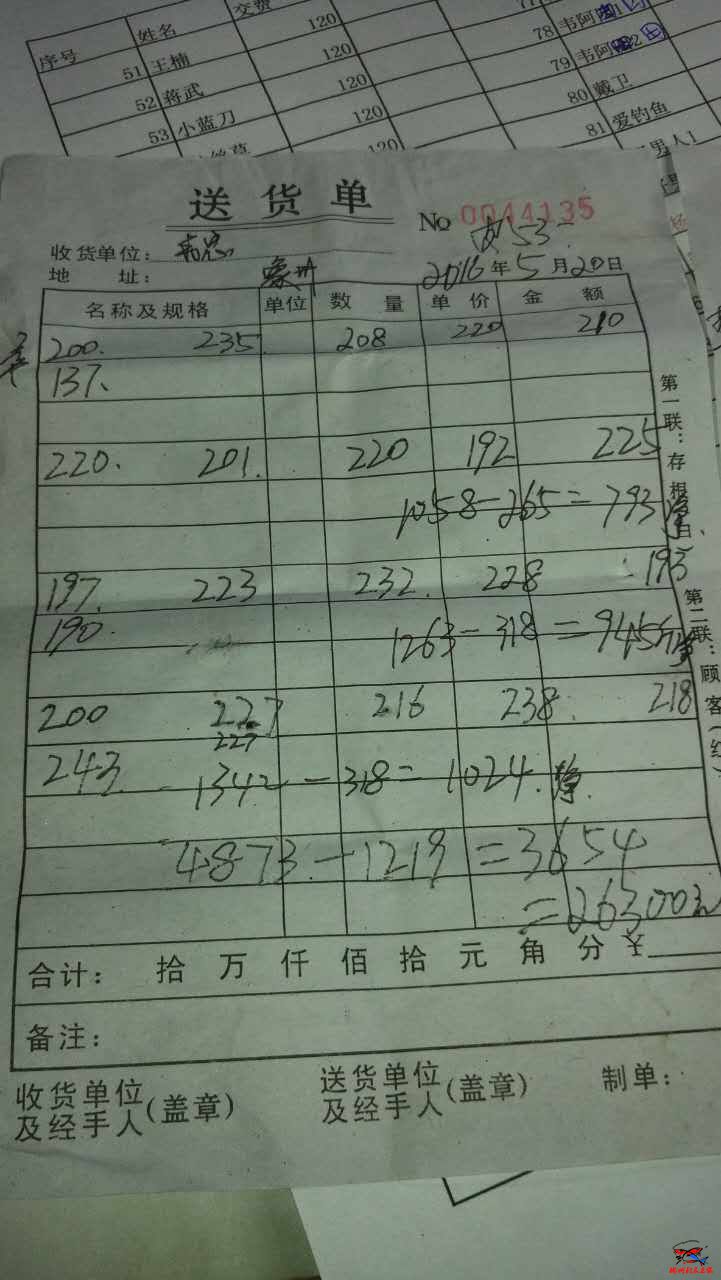 序号 姓名 交费 120
51 王楠 120 78 韦阿
52 蒋武 120 79 韦阿 2
53 小蓝刀 120 80 戴卫
120 81 爱钓鱼
男人1
送货单
No 0044135
收货单位:
地址: 象州 2016年5月20日
名称及规格 单位 数量 单价 金额
200. 235. 208 220 210
137.
220. 201. 220 192 225
1058-265=793净
197. 223 232. 228 193
190. 1263-318=945净
200 227 216 238. 218
227
243. 1342-318=1024.净.
4873-1219=3654
=26300元
合计: 拾 万 仟 佰 拾 元 角 分 ¥
备注:
收货单位及经手人(盖章) 送货单位及经手人(盖章) 制单:
第一联:存根(白)、
第二联:顾客(红)